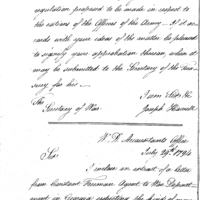 regulation proposed to be made in respect to
the rations of the Officers of the Army. If it ac-
cords with your ideas of the matter be pleased
to signify your approbation thereon, when it
may be submitted to the Secretary of the Trea-
sury for his.
I am Sir &c
The Joseph Howell
Secretary of War.
W. D. Accountants Office
July 29th 1794
Sir
I enclose an extract of a letter
from Constant Freeman Agent to War Depart-
ment in Georgia